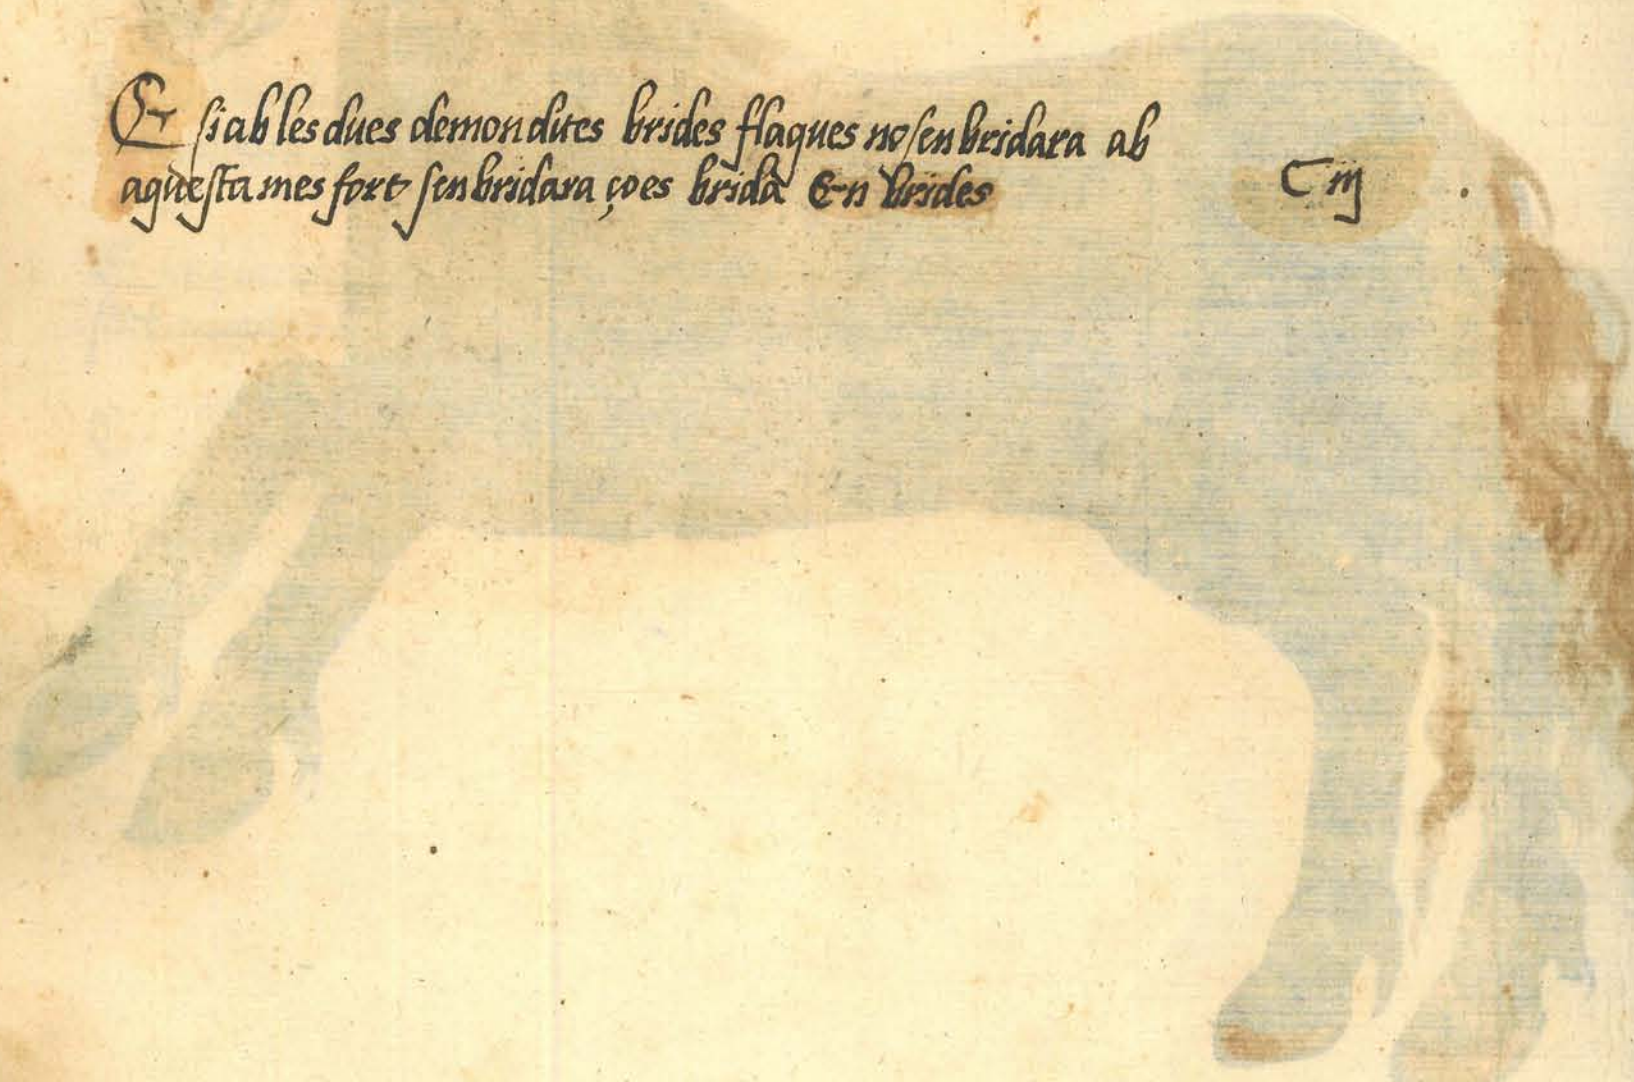 Et si ab les dues demondites brides flaques no sen bridara ab
aquesta mes fort sen bridara ço es brida En brides
C iij